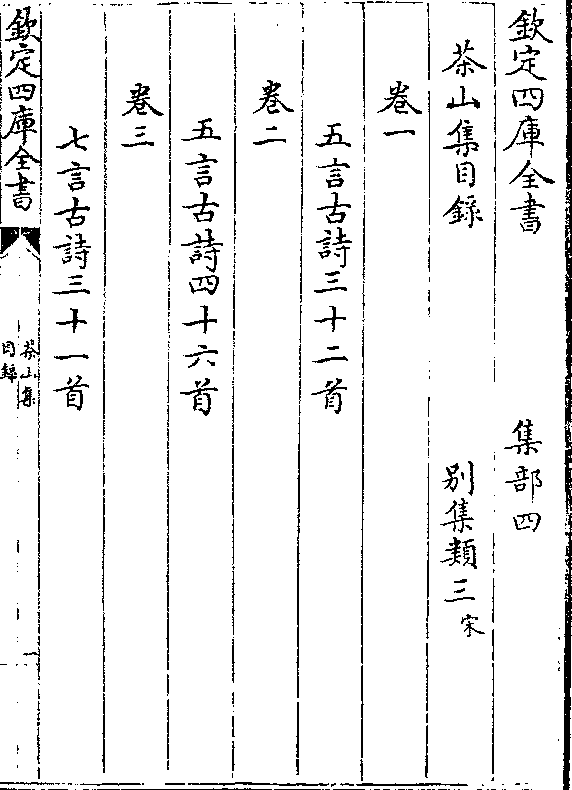 欽定四庫全書 集部四
茶山集目録 別集類三 宋
卷一
五言古詩三十二首
卷二
五言古詩四十六首
卷三
七言古詩三十一首
欽定四庫全書
茶山集
目録
一